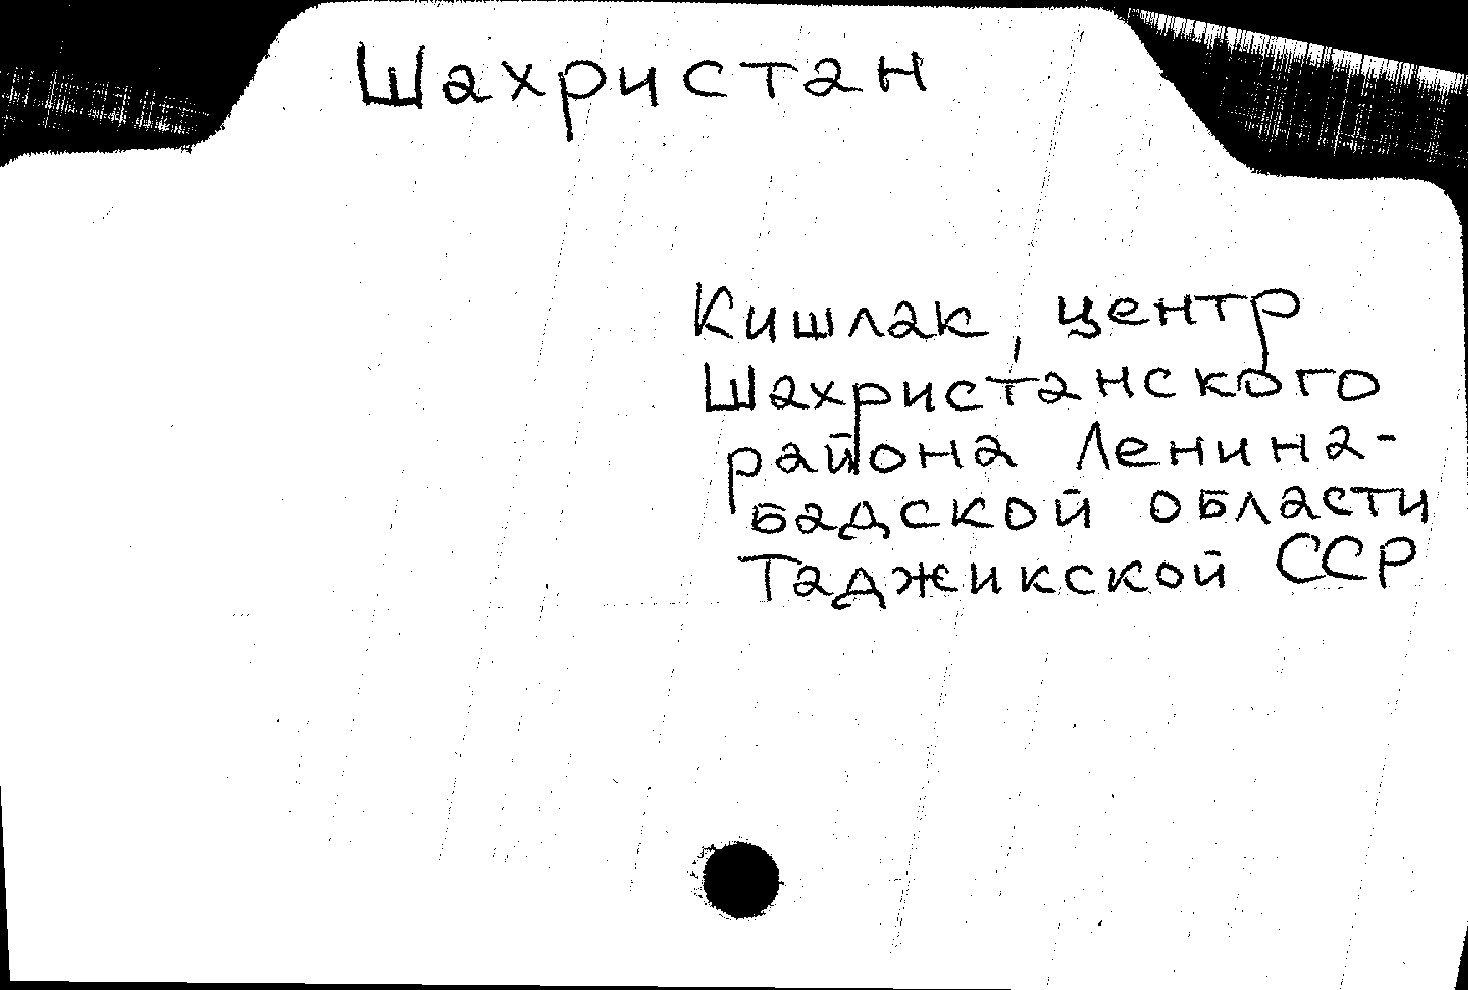 Шахристан
Кишлак, центр
Шахристанского
района Ленина-
бадской области
Таджикской ССР